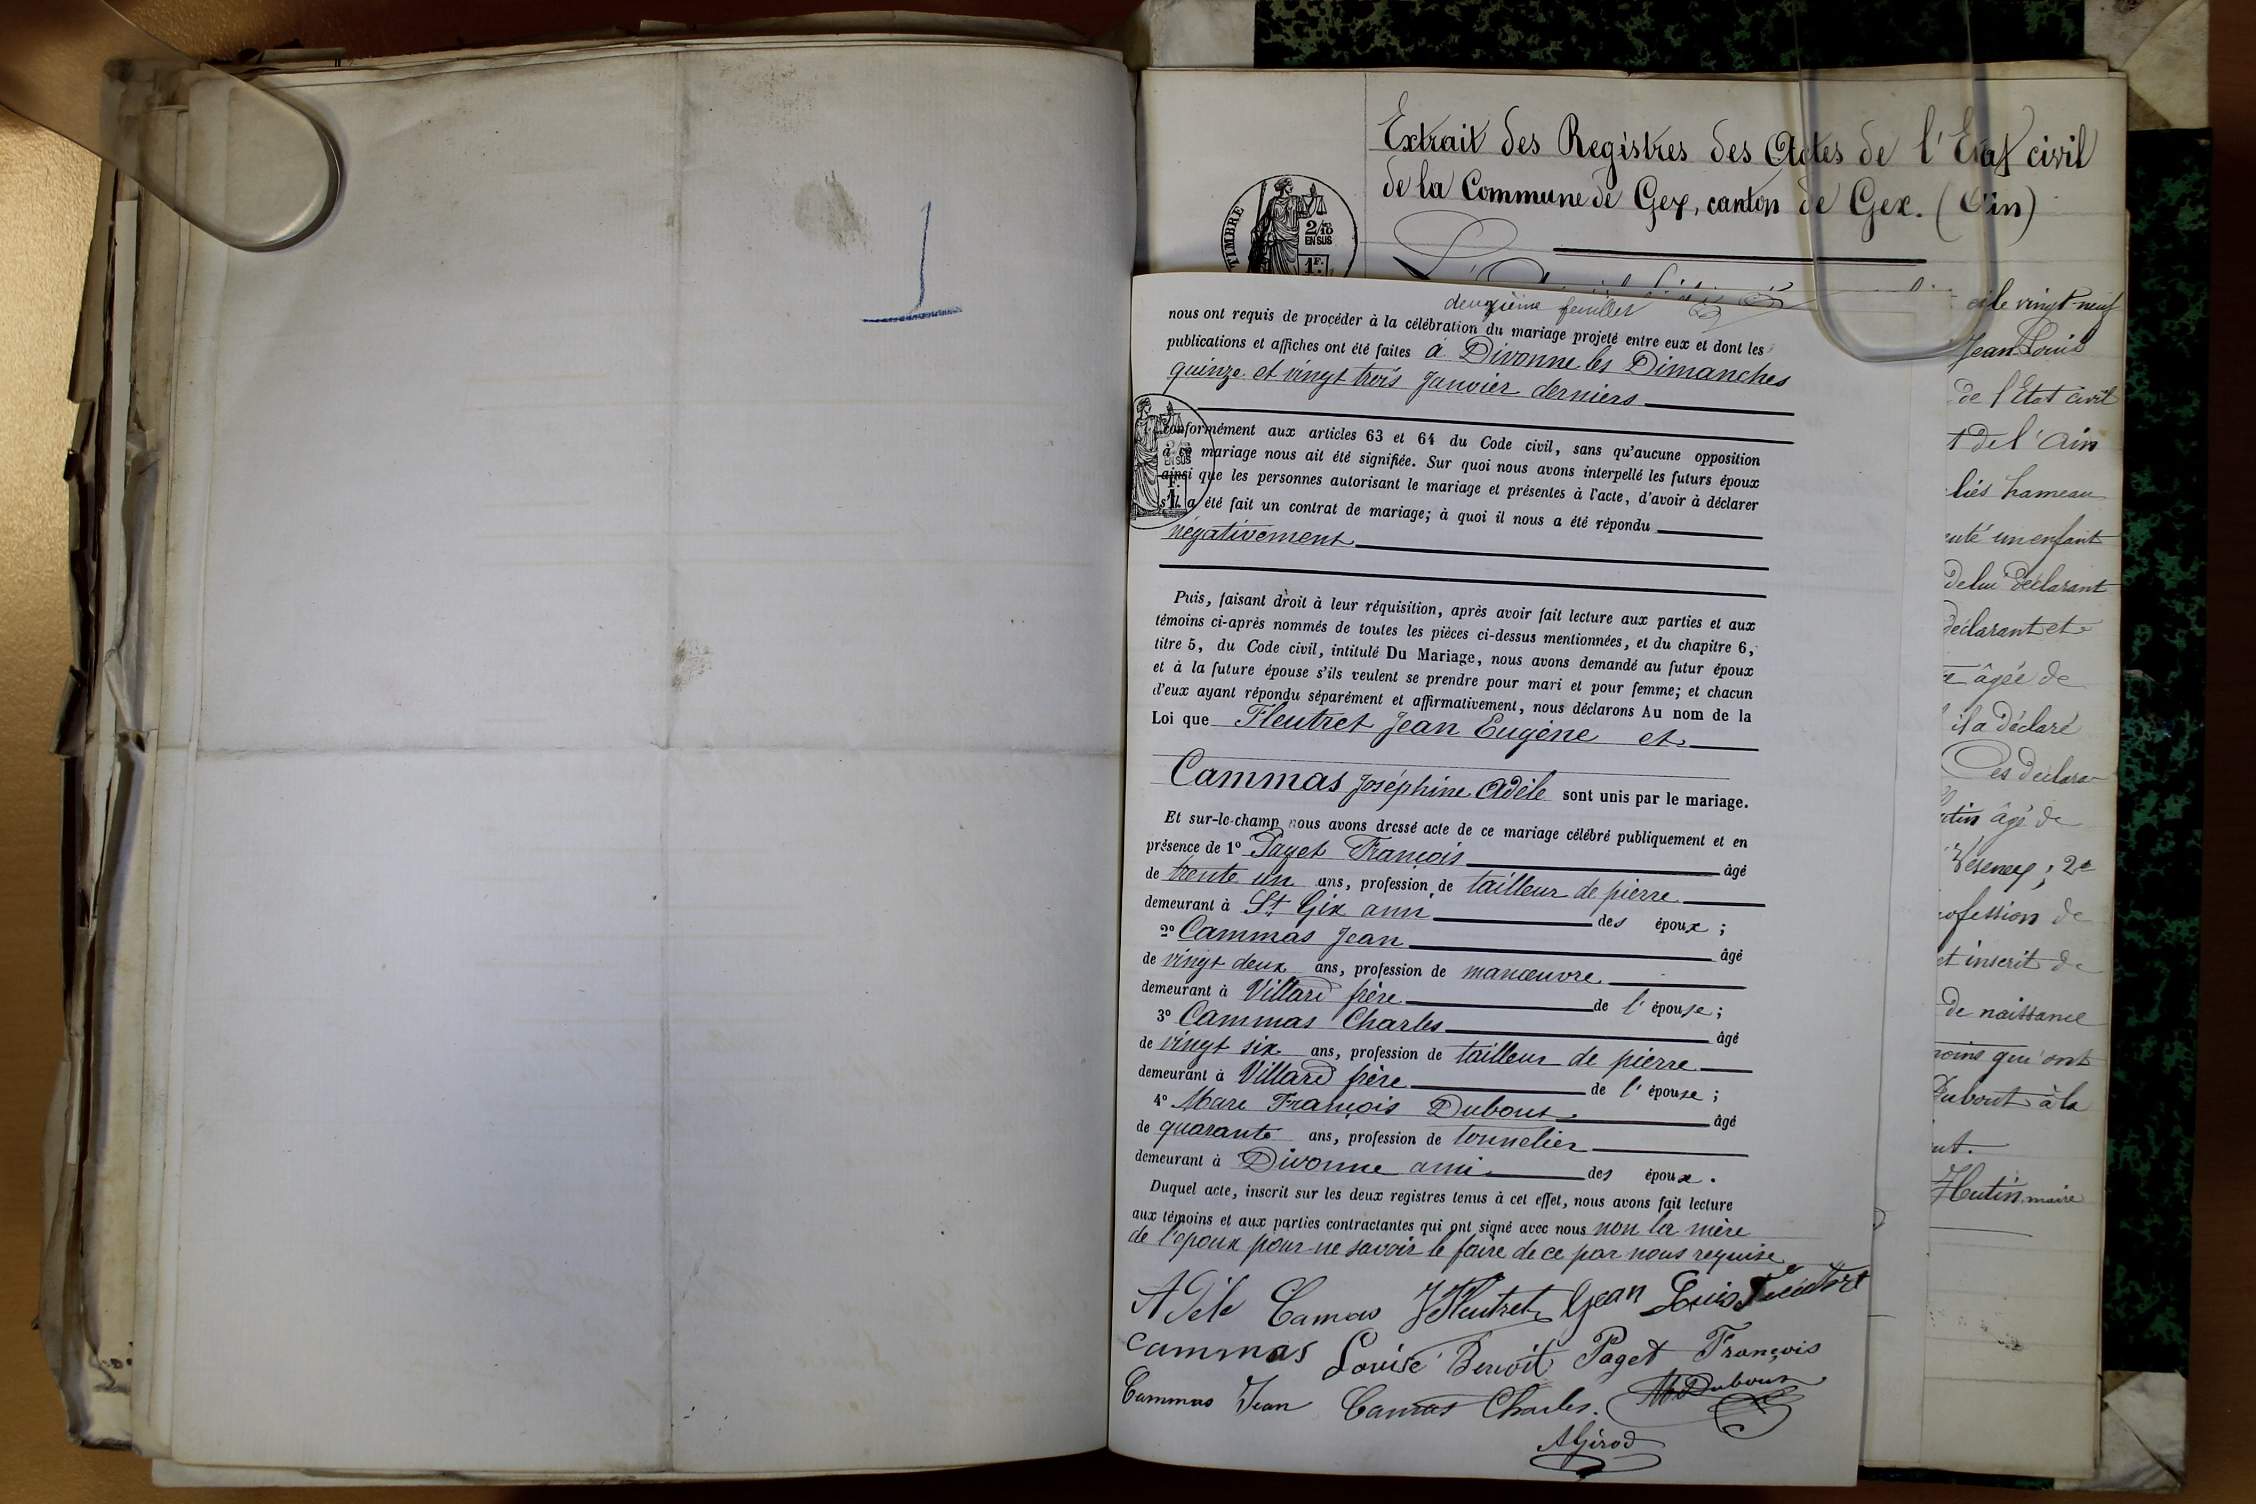 1
Extrait des Registres des Actes de l'Etat civil
de la Commune de Gex, canton de Gex. (Ain)
TIMBRE
2/10
EN SUS
1F.
deuxième feuillet
nous ont requis de procéder à la célébration du mariage projeté entre eux et dont les
publications et affiches ont été faites à Divonne les Dimanches
quinze et vingt trois Janvier derniers
conformément aux articles 63 et 64 du Code civil, sans qu'aucune opposition
à ce mariage nous ait été signifiée. Sur quoi nous avons interpellé les futurs époux
ainsi que les personnes autorisant le mariage et présentes à l'acte, d'avoir à déclarer
s'il a été fait un contrat de mariage; à quoi il nous a été répondu
négativement
Puis, faisant droit à leur réquisition, après avoir fait lecture aux parties et aux
témoins ci-après nommés de toutes les pièces ci-dessus mentionnées, et du chapitre 6,
titre 5, du Code civil, intitulé Du Mariage, nous avons demandé au futur époux
et à la future épouse s'ils veulent se prendre pour mari et pour femme; et chacun
d'eux ayant répondu séparément et affirmativement, nous déclarons Au nom de la
Loi que Fleutret Jean Eugène et
Cammas Joséphine Adèle sont unis par le mariage.
Et sur-le-champ nous avons dressé acte de ce mariage célébré publiquement et en
présence de 1º Paget François âgé
de trente un ans, profession de tailleur de pierre
demeurant à St Gix ami des époux;
2º Cammas Jean âgé
de vingt deux ans, profession de manœuvre
demeurant à Villard frère de l'épouse;
3º Cammas Charles âgé
de vingt six ans, profession de tailleur de pierre
demeurant à Villard frère de l'épouse;
4º Marc François Dubout âgé
de quarante ans, profession de tonnelier
demeurant à Divonne ami des époux.
Duquel acte, inscrit sur les deux registres tenus à cet effet, nous avons fait lecture
aux témoins et aux parties contractantes qui ont signé avec nous non la mère
de l'époux pour ne savoir le faire de ce par nous requise
Adèle Camas JFleutret Jean Louis Fleutret
cammas Louise Benoit Paget François
Cammas Jean Camas Charles. Dubout
AGirod
vingt-neuf
Jean Louis
de l'Etat civil
t de l'Ain
liés hameau
enté un enfant
de lui déclarant
déclarant et
âgée de
il a déclaré
Ces déclara-
utin âgé de
Vésenex; 2e
rofession de
et inscrit de
de naissance
moins qu'ont
Dubout à la
Hutin, maire